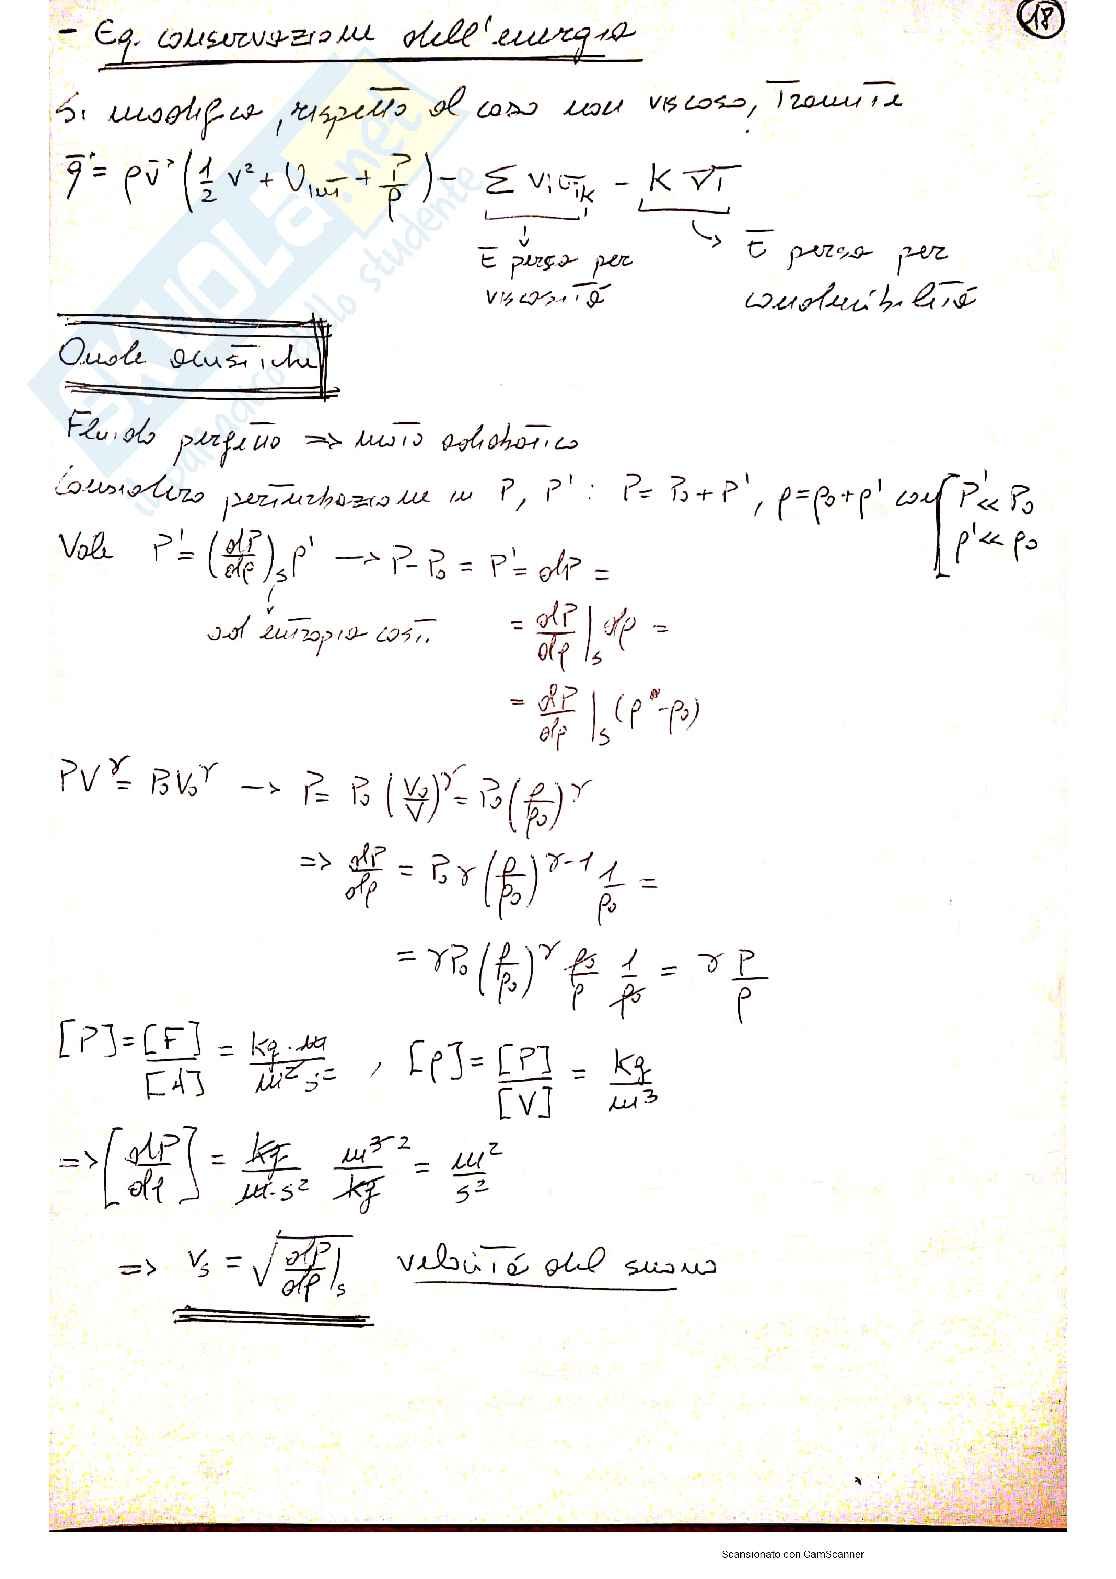 18
- Eq. conservazione dell'energia
Si modifica, rispetto al caso non viscoso, tramite
q⃗ = ρv⃗ (1/2 v² + U_int + P/ρ) - Σ v_i σ_ik - K ∇T
E persa per viscosità
E persa per conducibilità
Onde acustiche
Fluido perfetto => moto adiabatico
Considero perturbazione in P, P' : P = P₀ + P', ρ = ρ₀ + ρ' con [P' << P₀
ρ' << ρ₀
Vale P' = (dP/dρ)_S ρ' → P - P₀ = P' = dP =
ad entropia cost.
= dP/dρ |_S dρ =
= dP/dρ |_S (ρ - ρ₀)
PV^γ = P₀V₀^γ → P = P₀ (V₀/V)^γ = P₀ (ρ/ρ₀)^γ
=> dP/dρ = P₀ γ (ρ/ρ₀)^(γ-1) 1/ρ₀ =
= γP₀ (ρ/ρ₀)^γ ρ₀/ρ 1/ρ₀ = γ P/ρ
[P] = [F]/[A] = kg·m/m² s² , [ρ] = [P]/[V] = kg/m³
=> [dP/dρ] = kg/m·s² m³ ²/kg = m²/s²
=> v_s = √(dP/dρ |_S) velocità del suono
SKUOLA.net
il paradiso dello studente
Scansionato con CamScanner